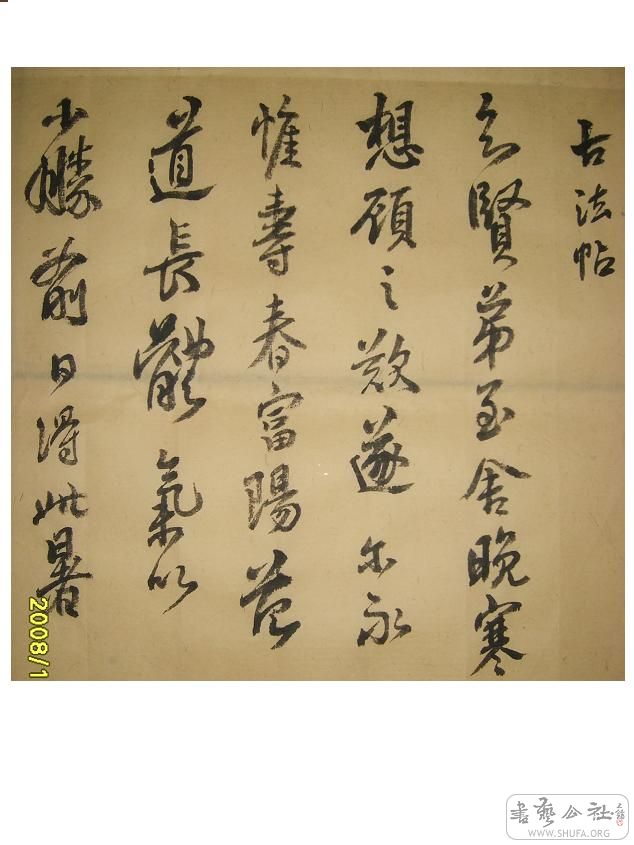 古法帖
云賢弟至舍晚寒
想顧之遂尔永
惟壽春富陽
道長體氣以
少勝前日得此暑
2008/1
書藝公社
WWW.SHUFA.ORG